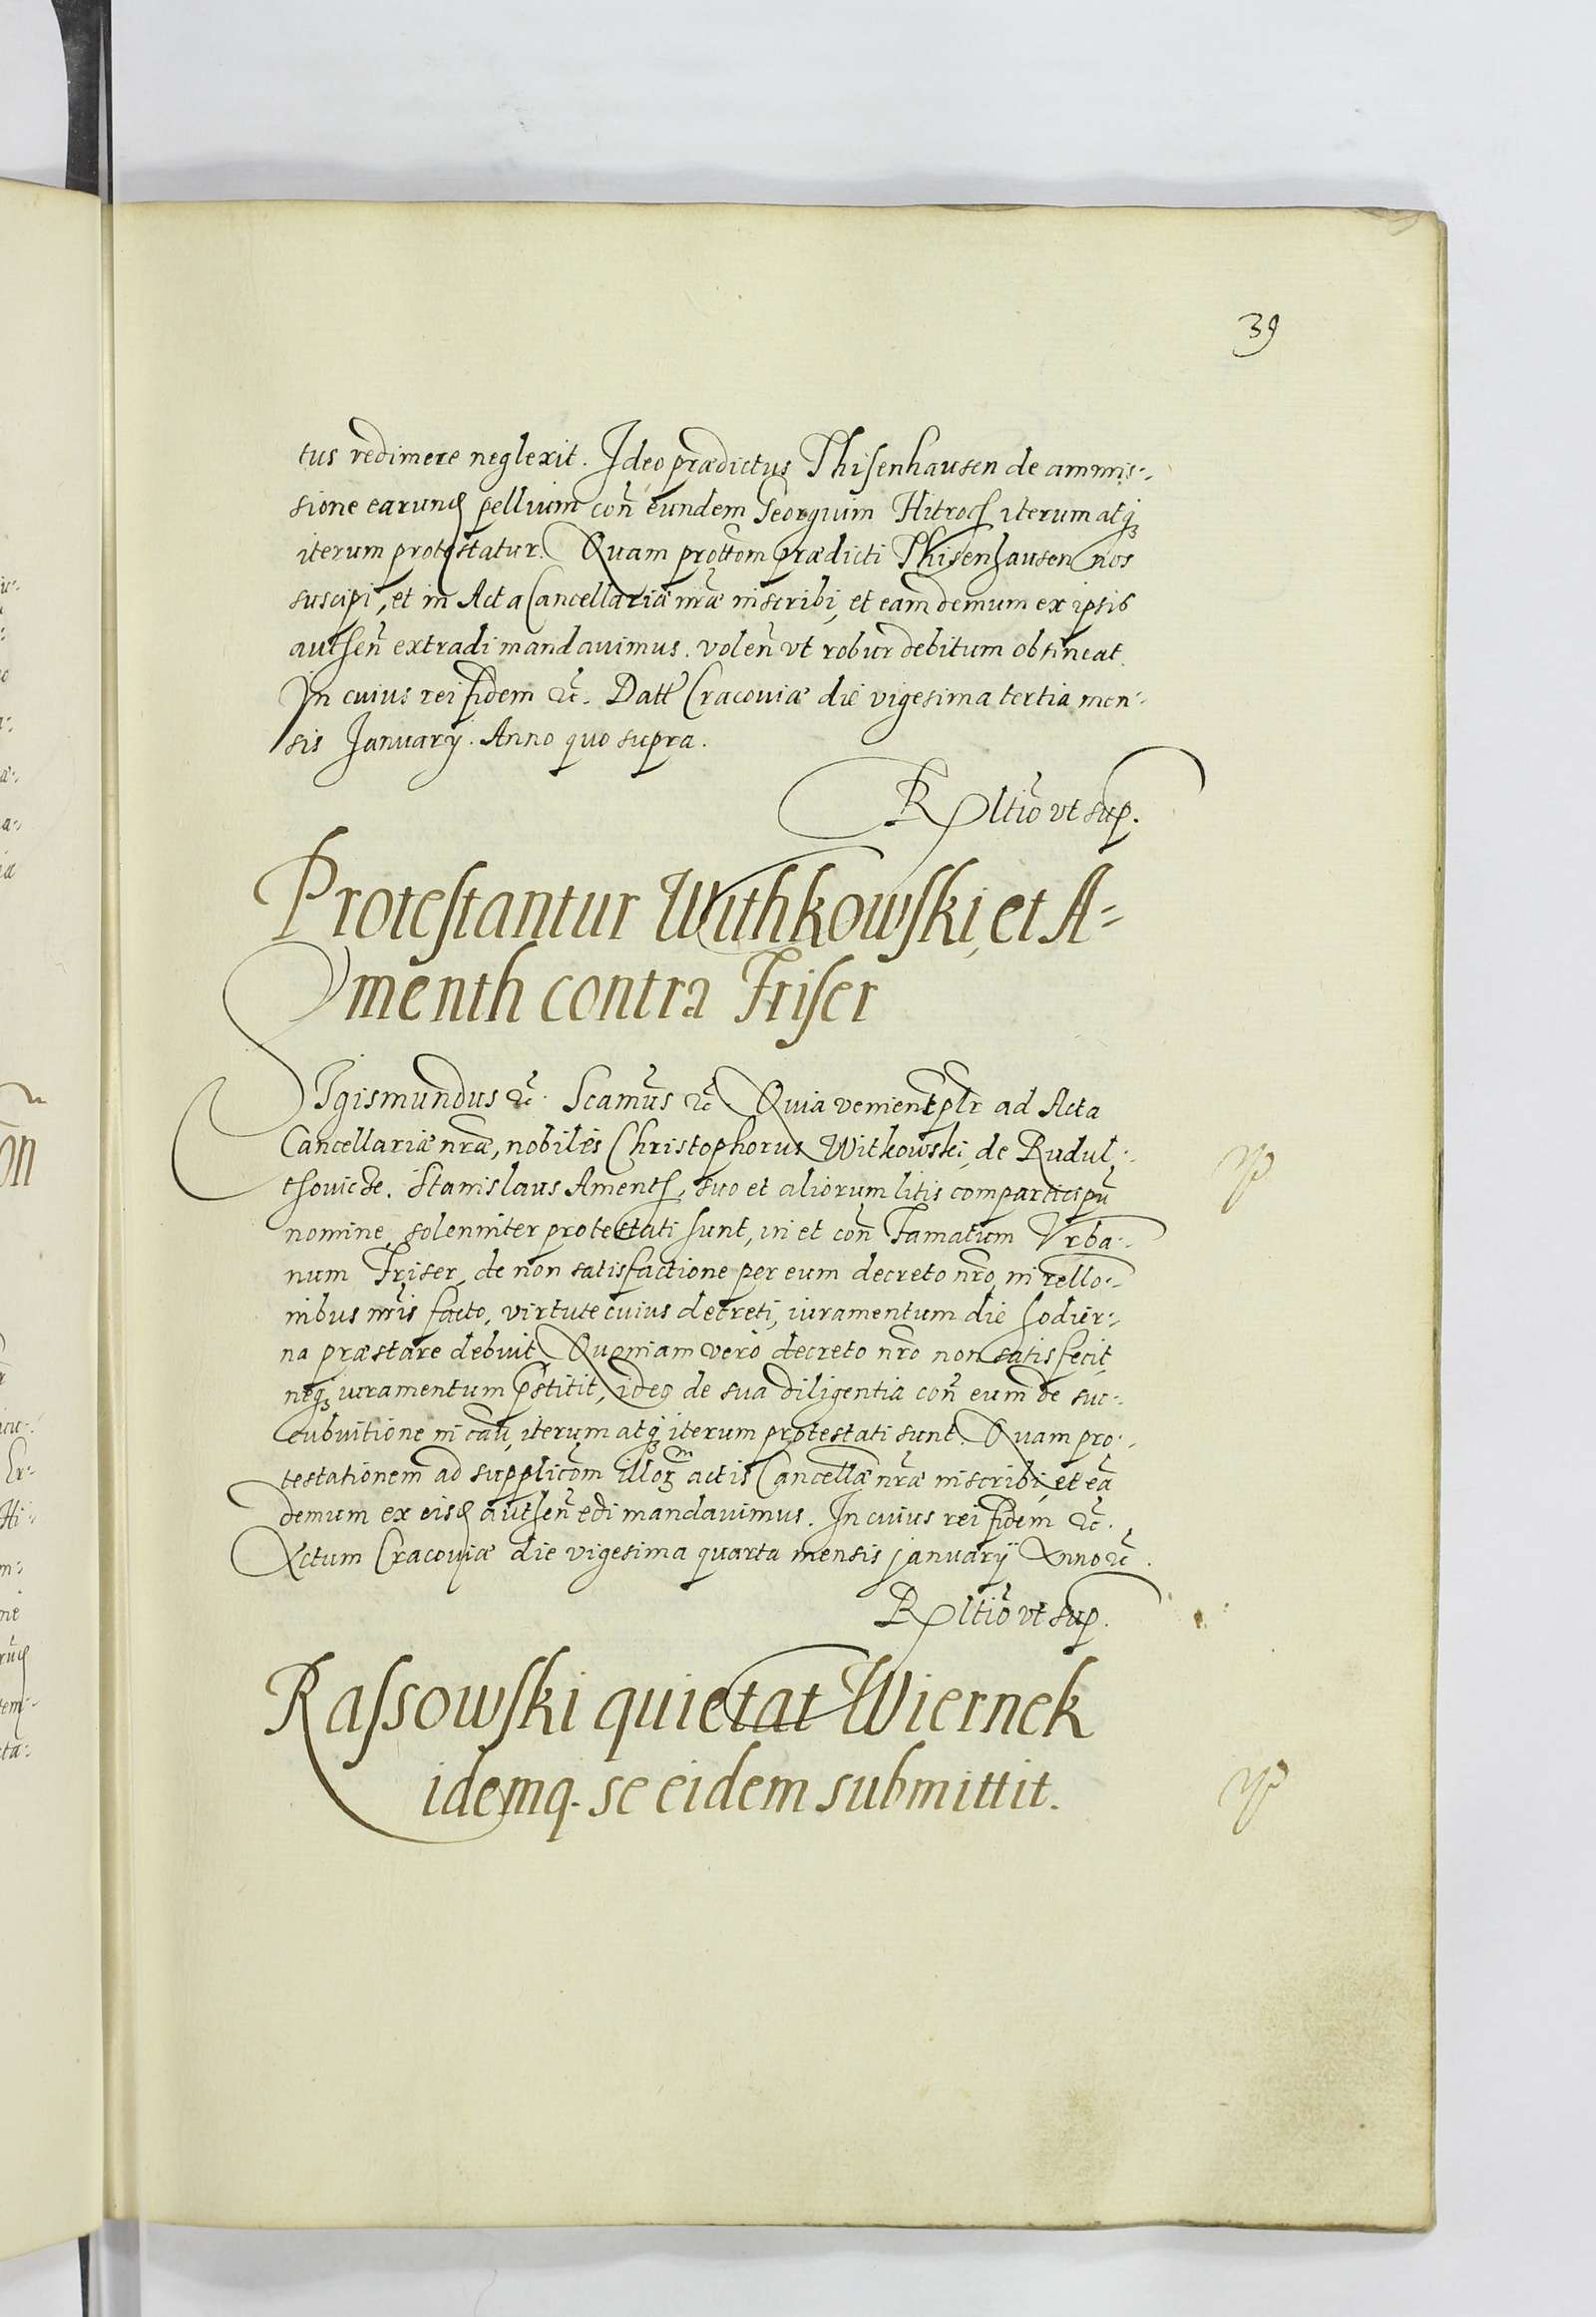 39
tus redimere neglexit. Ideo prædictus Thisenhausen de ammis-
sione earund pellium coñ eundem Georgium Hitroch iterum atq
iterum protestatur. Quam prottom prædicti Thisenhausen nos
suscipi, et in Acta Cancellariæ nræ inscribi, et eam demum ex ipsis
authen extradi mandavimus. volen vt robur debitum obtineat.
In cuius rei fidem &c. Datt Cracoviæ die vigesima tertia men-
sis Januarij. Anno quo supra.
Rltio vt sup.
Protestantur Withkowski, et A=
menth contra Friser
Sigismundus &c. Scamus &c. Quia venient plr ad Acta
Cancellariæ nræ, nobiles Christophorus Witkowski, de Rudul-
thovicze. Stanislaus Amenth, suo et aliorum litis comparticipu
nomine, solenniter protestati sunt, in et coñ Famatum Vrba-
num Friser, de non satisfactione per eum decreto nro, in rello-
nibus nris facto, virtute cuius decreti, iuramentum die hodier-
na præstare debuit. Quoniam vero decreto nro non satisfecit
neq iuramentum pstitit, ideo de sua diligentia coñ eum de suc-
cubuitione in cau, iterum atq iterum protestati sunt. Quam pro-
testationem ad supplicom illor actis Cancellæ nræ inscribi, et ea
demum ex eisd authen edi mandavimus. In cuius rei fidem &c.
Actum Cracoviæ die vigesima quarta mensis januarij Anno &c.
Rltio vt sup.
Rassowski quietat Wiernek
idemq. se eidem submittit.